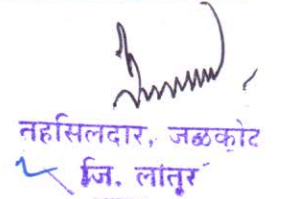 तहसिलदार, जळकोट
जि. लातूर